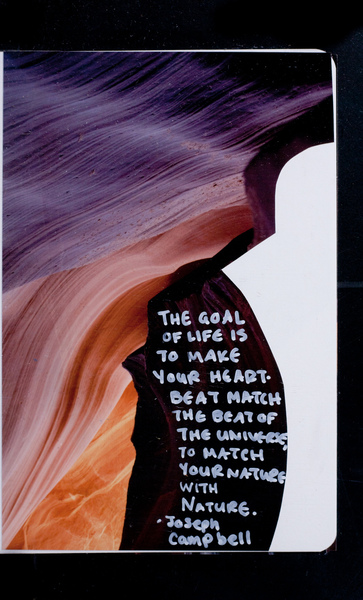 THE GOAL
OF LIFE IS
TO MAKE
YOUR HEART-
BEAT MATCH
THE BEAT OF
THE UNIVERSE,
TO MATCH
YOUR NATURE
WITH
NATURE.
-Joseph
Campbell